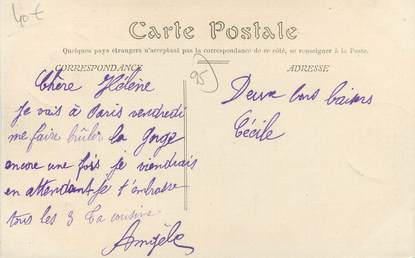 40€
Carte Postale
Quelques pays étrangers n'acceptant pas la correspondance de ce côté, se renseigner à la Poste.
CORRESPONDANCE
ADRESSE
95
Chère Hélène
Je vais à Paris vendredi
me faire brûler la gorge
encore une fois je viendrais
en attendant je t'embrasse
tous les 3 Ta cousine
Angèle
Deux bons baisers
Cécile